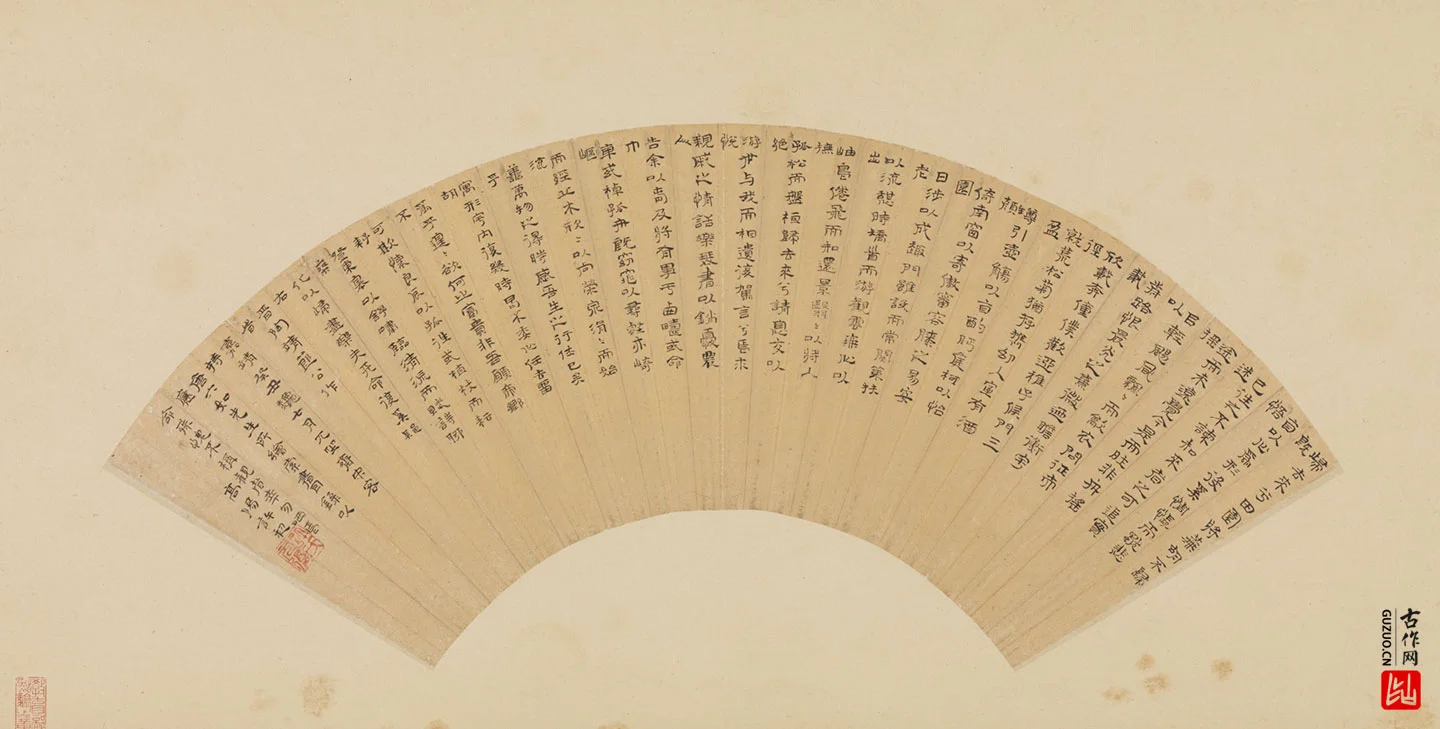 歸去來兮田園將蕪胡不歸
既自以心爲形役奚惆悵而獨悲
悟已往之不諫知來者之可追實
迷途而未遠覺今是而昨非舟搖
以輕颺風飄〻而飄衣問征夫
以前路恨晨光之熹微乃瞻衡宇
載欣載奔僮僕歡迎稚子候門三
徑就荒松菊猶存攜幼入室有酒
盈罇引壺觴以自酌眄庭柯以怡
顏倚南窗以寄傲審容膝之易安
園日涉以成趣門雖設而常關策扶
老以流憩時矯首而游觀雲無心以
出岫鳥倦飛而知還景翳〻以將入
撫孤松而盤桓歸去來兮請息交以
絕游世与我而相遺復駕言兮焉求
悅親戚之情話樂琴書以銷憂農
人告余以春及將有事乎西疇或命
巾車或棹孤舟既窈窕以尋壑亦崎
嶇而經丘木欣〻以向榮泉涓〻而始
流羨萬物之得時感吾生之行休已矣
乎寓形宇內復幾時曷不委心任去留
胡爲乎遑〻欲何之富貴非吾願帝鄉
不可期懷良辰以孤往或植杖而耘
耔登東皋以舒嘯臨清流而賦詩聊
乘化以歸盡樂夫天命復奚疑
右晉陶靖節公作
嘉靖癸丑七月九日齋中客
持唐六如先生所繪索書錄以
應愧不稱觀者幸勿哂焉
高陽許初
古作网
GUZUO.CN